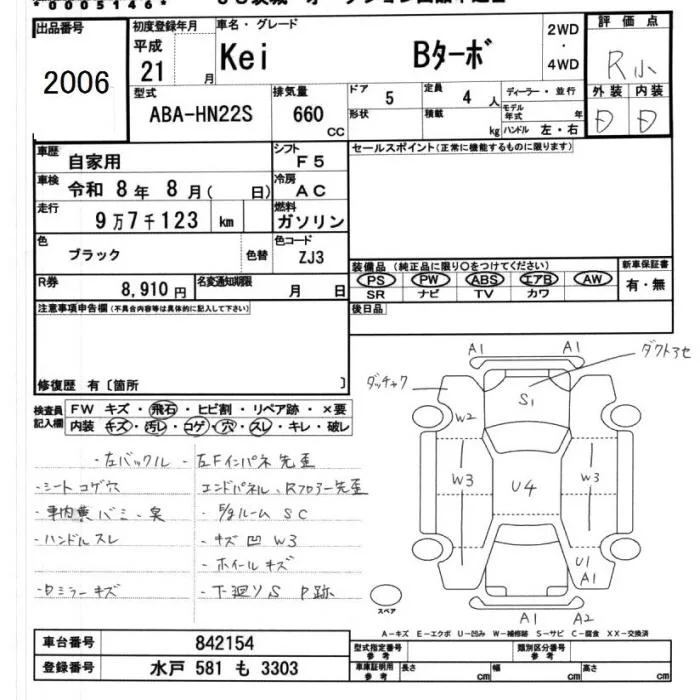 *0005146*
出品番号
2006
初度登録年月
平成
21 月
車名・グレード
Kei Bターボ
2WD
・
4WD
評価点
R小
外装 内装
D D
型式
ABA-HN22S
排気量
660
CC
ドア
5
定員
4 人
形状
積載
kg
ディーラー・並行
モデル年式 年
ハンドル 左・右
車歴
自家用
シフト
F5
車検
令和 8年 8月( 日)
冷房
AC
走行
9万7千123 km
燃料
ガソリン
色
ブラック
色替
色コード
ZJ3
R券
8,910円
名変通知期限
月 日
セールスポイント(正常に機能するものに限ります)
装備品(純正品に限り○をつけてください)
PS PW ABS エアB AW
SR ナビ TV カワ
新車保証書
有・無
後日品
注意事項申告欄(不具合内容等は具体的に記入して下さい)
修復歴 有〔箇所 〕
検査員記入欄
FW キズ・飛石・ヒビ割・リペア跡・×要
内装 キズ・汚レ・コゲ・穴・スレ・キレ・破レ
・左バックル
・シート コゲ穴
・ハンドル スレ
・ロミラー キズ
・左Fインパネ 先歪
エンドパネル、Rフロアー先歪
・キズ 凹 W3
・ホイール キズ
・下廻り S P跡
A1 A1
ダクトアセ
ダッチャク
S1
W2
W3 U4 W3
U1
A1
A1 A2
スペア
A-キズ E-エクボ U-凹み W-補修跡 S-サビ C-腐食 XX-交換済
車台番号
842154
登録番号
水戸 581 も 3303
型式指定番号
参考
類別区分番号
参考
車庫証明用
参考
長さ cm
幅 cm
高さ cm